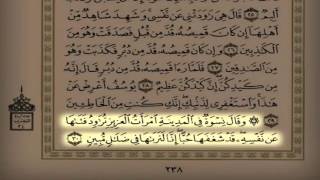 أَلِيمٌ ٢٥ قَالَ هِىَ رَٰوَدَتْنِى عَن نَّفْسِى وَشَهِدَ شَاهِدٌ مِّنْ
أَهْلِهَآ إِن كَانَ قَمِيصُهُۥ قُدَّ مِن قُبُلٍ فَصَدَقَتْ وَهُوَ مِنَ
ٱلْكَٰذِبِينَ ٢٦ وَإِن كَانَ قَمِيصُهُۥ قُدَّ مِن دُبُرٍ فَكَذَبَتْ وَهُوَ
مِنَ ٱلصَّٰدِقِينَ ٢٧ فَلَمَّا رَءَا قَمِيصَهُۥ قُدَّ مِن دُبُرٍ قَالَ إِنَّهُۥ
مِن كَيْدِكُنَّ إِنَّ كَيْدَكُنَّ عَظِيمٌ ٢٨ يُوسُفُ أَعْرِضْ عَنْ
هَٰذَا وَٱسْتَغْفِرِى لِذَنۢبِكِ إِنَّكِ كُنتِ مِنَ ٱلْخَاطِـِٔينَ
٢٩ وَقَالَ نِسْوَةٌ فِى ٱلْمَدِينَةِ ٱمْرَأَتُ ٱلْعَزِيزِ تُرَٰوِدُ فَتَىٰهَا
عَن نَّفْسِهِۦ قَدْ شَغَفَهَا حُبًّا إِنَّا لَنَرَىٰهَا فِى ضَلَٰلٍ مُّبِينٍ ٣٠
٢٣٨